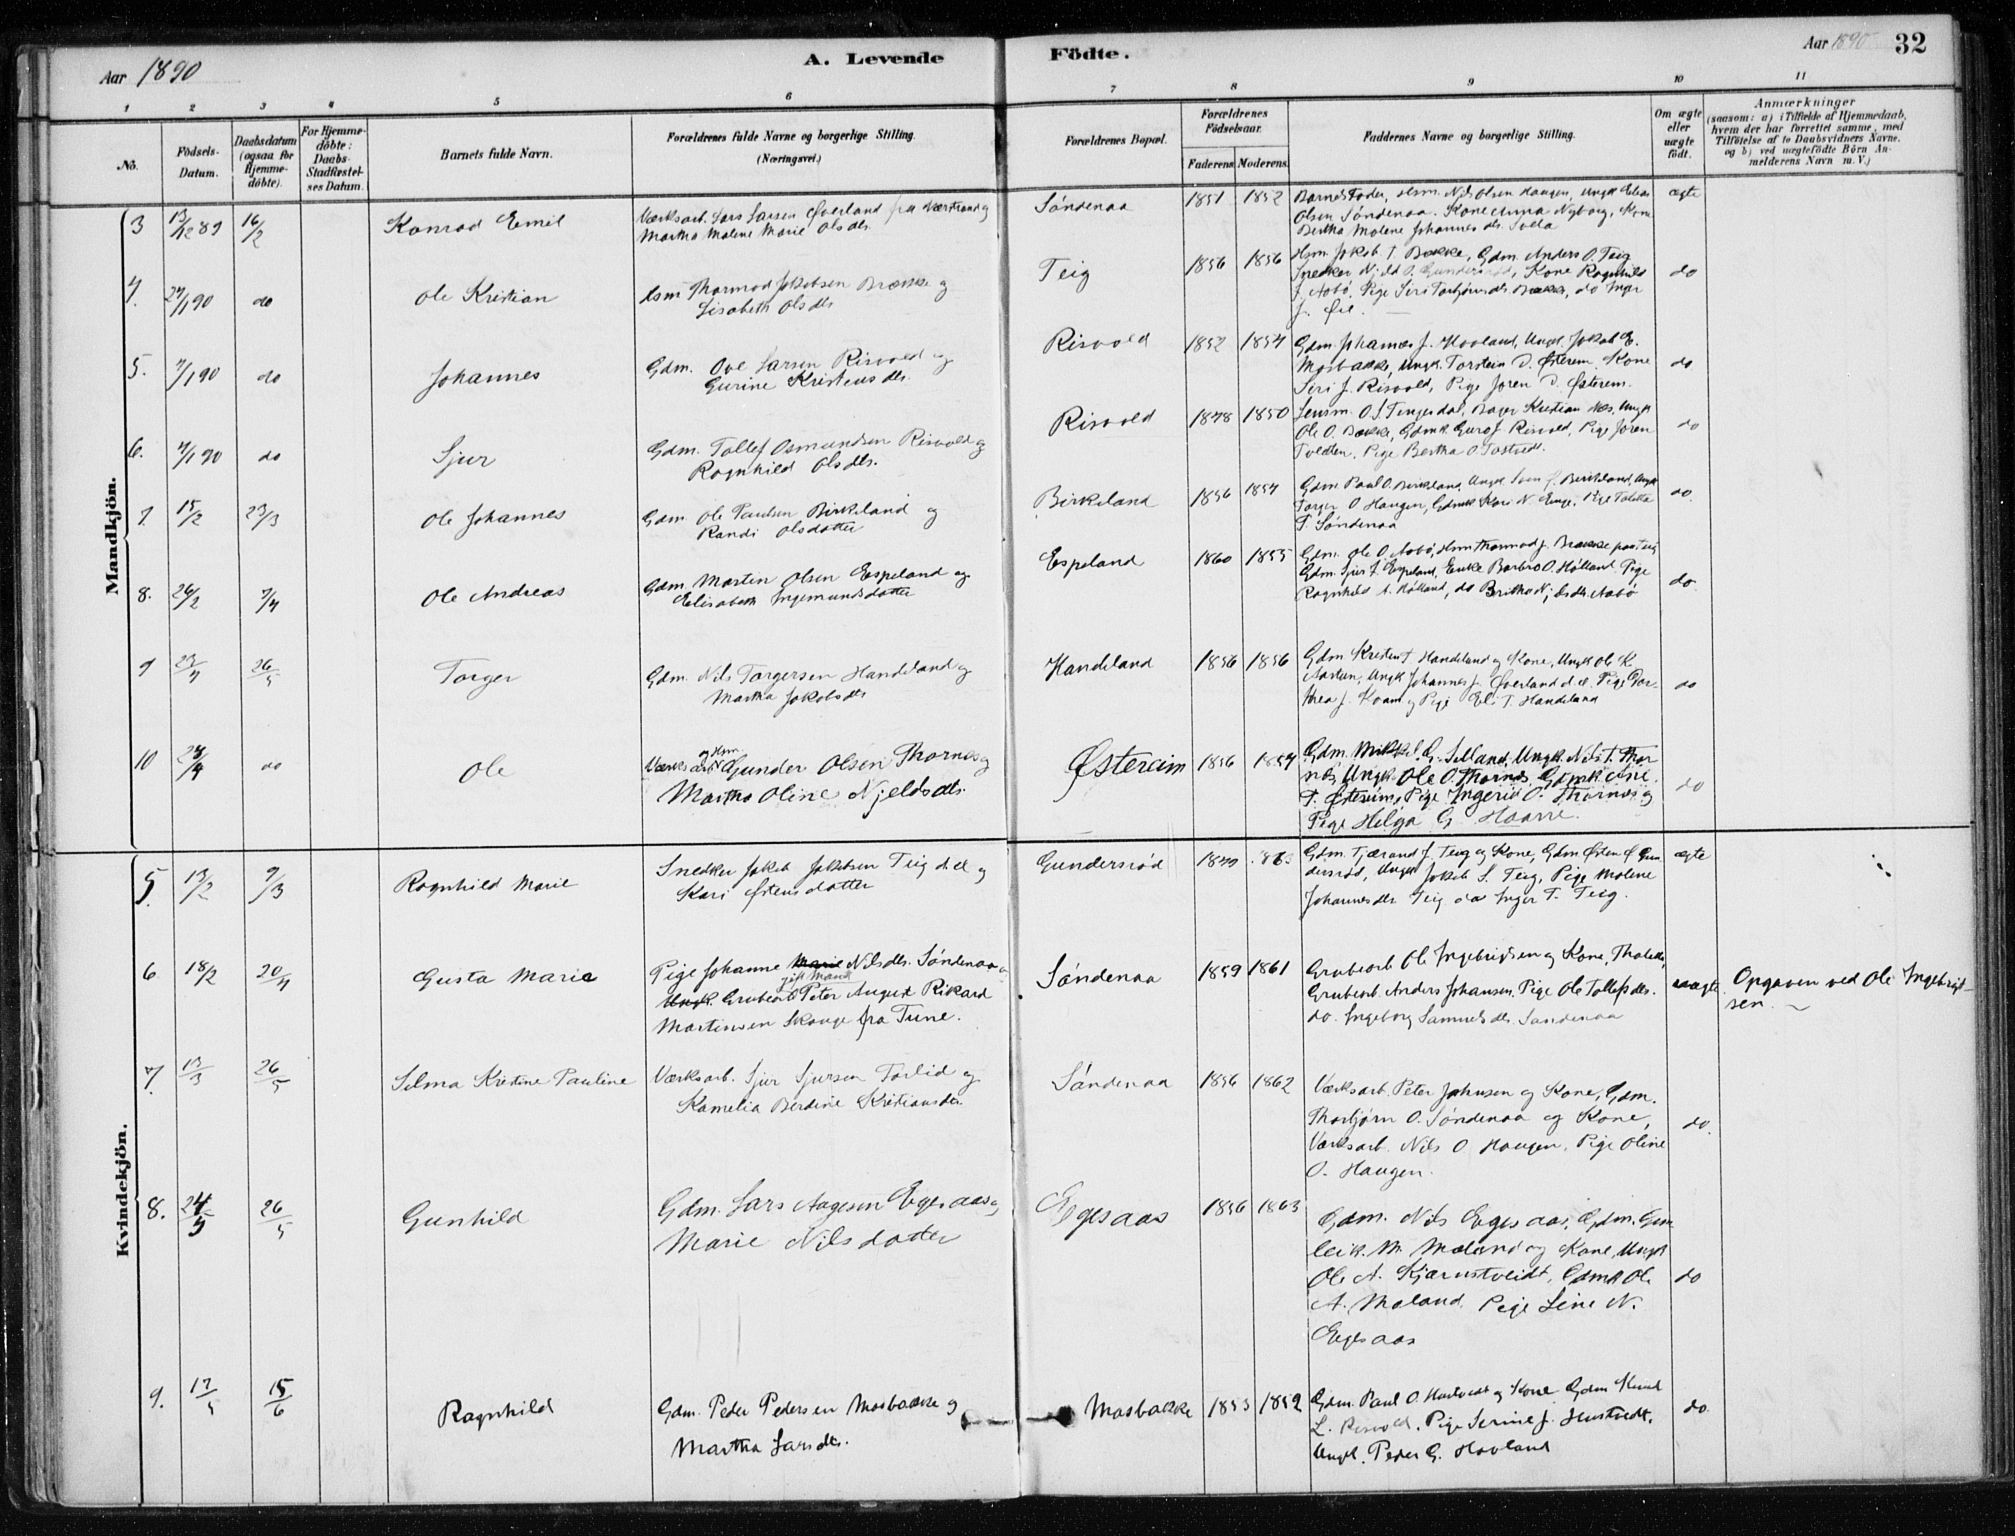 Aar 1890
A. Levende Födte.
Aar 1890 32
1 2 3 4 5 6 7 8 9 10 11
No.
Födsels-Datum.
Daabsdatum (ogsaa for Hjemme-döbte).
For Hjemme-döbte: Daabs-Stadfæstel-ses Datum.
Barnets fulde Navn.
Forældrenes fulde Navne og borgerlige Stilling. (Næringsvei.)
Forældrenes Bopæl.
Forældrenes Födselsaar.
Faderens Moderens
Faddernes Navne og borgerlige Stilling.
Om ægte eller uægte födt.
Anmærkninger
(saasom: a) i Tilfælde af Hjemmedaab, hvem der har forrettet samme, med Tilföielse af to Daabsvidners Navne, og b) ved uægtefödte Börn An-melderens Navn m. V.)
Mandkjön.
3 13/12 89 16/2 Konrad Emil
Værksarb. Lars Larsen Øverland fra Nærstrand og
Martha Malene Marie Olsdtr.
Söndenaa 1851 1852
Barnets Fader, Hsm. Nils Olsen Haugen, Ungk. Elias
Olsen Söndenaa. Kone Anna Nyborg, Kone
Bertha Malene Johannesdtr.
ægte
4. 24/1 90 do Ole Kristian
Hsm Thormod Jakobsen Brække og
Lisabeth Olsdtr
Teig 1856 1856
Hsm. Jakob T. Bække, Gdm. Anders O. Teig
Snedker Njeld O. Gundersröd, Kone Ragnhild
J. Aabö, Pige Siri Torbjörnsdtr Bække, do Inger
do
5. 7/1 90 do Johannes
Gdm. Ove Larsen Risvold og
Gurine Kristensdtr.
Risvold 1852 1854
Gdm. Johannes J. Hovland, Ungk. Jakob E.
Mosbække, Ungk. Torstein D. Østerem. Kone
Siri J. Risvold, Pige Joren D. Østerem.
do
6. 7/1 90 do Sjur
Gdm. Tollef Osmundsen Risvold og
Ragnhild Olsdtr.
Risvold 1848 1850
Lensm. O. S. Tengesdal, Bager Kristian Næs, Ungk
Ole O. Bække, Gdmk. Guro J. Risvold, Pige Joren
Tveldten, Pige Bertha O. Tostvedt.
do
7. 15/2 23/3 Ole Johannes
Gdm. Ole Paulsen Birkeland og
Randi Olsdatter
Birkeland 1856 1854
Gdm. Paul O. Birkeland, Ungk Sven J. Birkeland, Ungk
Torger O Haugen, Gdmk Kari N. Enge, Pige Tolette
T. Söndenaa
do.
8. 26/2 7/4 Ole Andreas
Gdm. Martin Olsen Espeland og
Elisabeth Ingemundsdatter
Espeland 1860 1855
Gdm. Ole O. Aabö, Hsm Thormod J. Brække paa Teig
Gdm. Sjur J. Espeland, Enke Barbro O. Hölland, Pige
Ragnhild A. Hölland, do Britha Njeldsdtr. Aabö
do.
9 23/4 26/5 Torger
Gdm. Nils Torgersen Handeland og
Martha Jakobsdtr
Handeland 1856 1856
Gdm Kristen T. Handeland og Kone, Ungk Ole K.
Aartun, Ungk Johannes J. Øverland d. æ. Pige Dor-
thea J. Kvam og Pige Eli T. Handeland
do
10 28/4 do Ole
og Hsm
Værksarb. Gunder Olsen Thornes og
Martha Oline Njeldsdtr.
Østereim 1856 1854
Gdm. Mikkel G. Selland, Ungk. Nils T. Thor
nes, Ungk. Ole O. Thornes, Gdmk Ane
T. Østereim, Pige Ingerid O. Thornes og
Pige Helga G. Haarre.
do
Kvindekjön.
5. 13/2 9/3 Ragnhild Marie
Snedker Jakob Jakobsen Teig d. æ og
Kari Østensdatter
Gundersröd 1863
Gdm. Tjærand J. Teig og Kone, Gdm Østen Ø Gun
dersröd, Ungk Jakob S. Teig, Pige Malene
Johannesdtr Teig do Inger T. Teig.
ægte
6 18/2 20/4 Gusta Marie
Pige Johanne Marie Nilsdtr. Söndenaa og
gift Mand
Ungk. Grubearb Peter August Rikard
Martinsen Skauge fra Tune.
Söndenaa 1859 1861
Grubearb Ole Ingebrigtsen og Kone, Thalette,
Grubearb. Anders Johansen, Pige Ole Tollefsdtr.
do. Ingeborg Samuelsdtr. Söndenaa
uægte
Opgaven ved Ole Ingebrigt-
sen.
7. 13/3 26/5 Selma Kristine Pauline
Værksarb. Sjur Sjursen Torlid og
Kamelia Berdine Kristiansdtr.
Söndenaa 1856 1862
Værksarb. Peter Johnsen og Kone, Gdm.
Thorbjörn O. Söndenaa og Kone,
Værksarb. Nils O Haugen, Pige Oline
O. Haugen.
do.
8. 24/3 26/5 Gunhild
Gdm. Lars Aagesen Egesaas og
Marie Nilsdatter
Egesaas 1856 1863
Gdm. Nils Egesaas, Gdm. Gun
leik. M. Mæland og Kone, Ungk
Ole A. Kjærnstveidt, Gdmk Ole
A. Moland. Pige Line N.
Egesaas
do
9. 17/5 15/6 Ragnhild
Gdm. Peder Pedersen Mosbække og
Martha Larsdtr.
Mosbække 1853 1859
Gdm. Paul O. Hustvedt og Kone Gdm Knud
L. Risvold. Pige Serine J. Hustvedt,
Ungk. Peder G. Hovland
do.